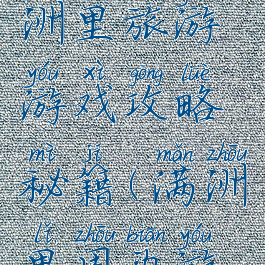 洲里旅游
yóu xì gōng lüè
游戏攻略
mì jí mǎn zhōu
秘籍(满洲
lǐ zhōu biān yóu
里周边游